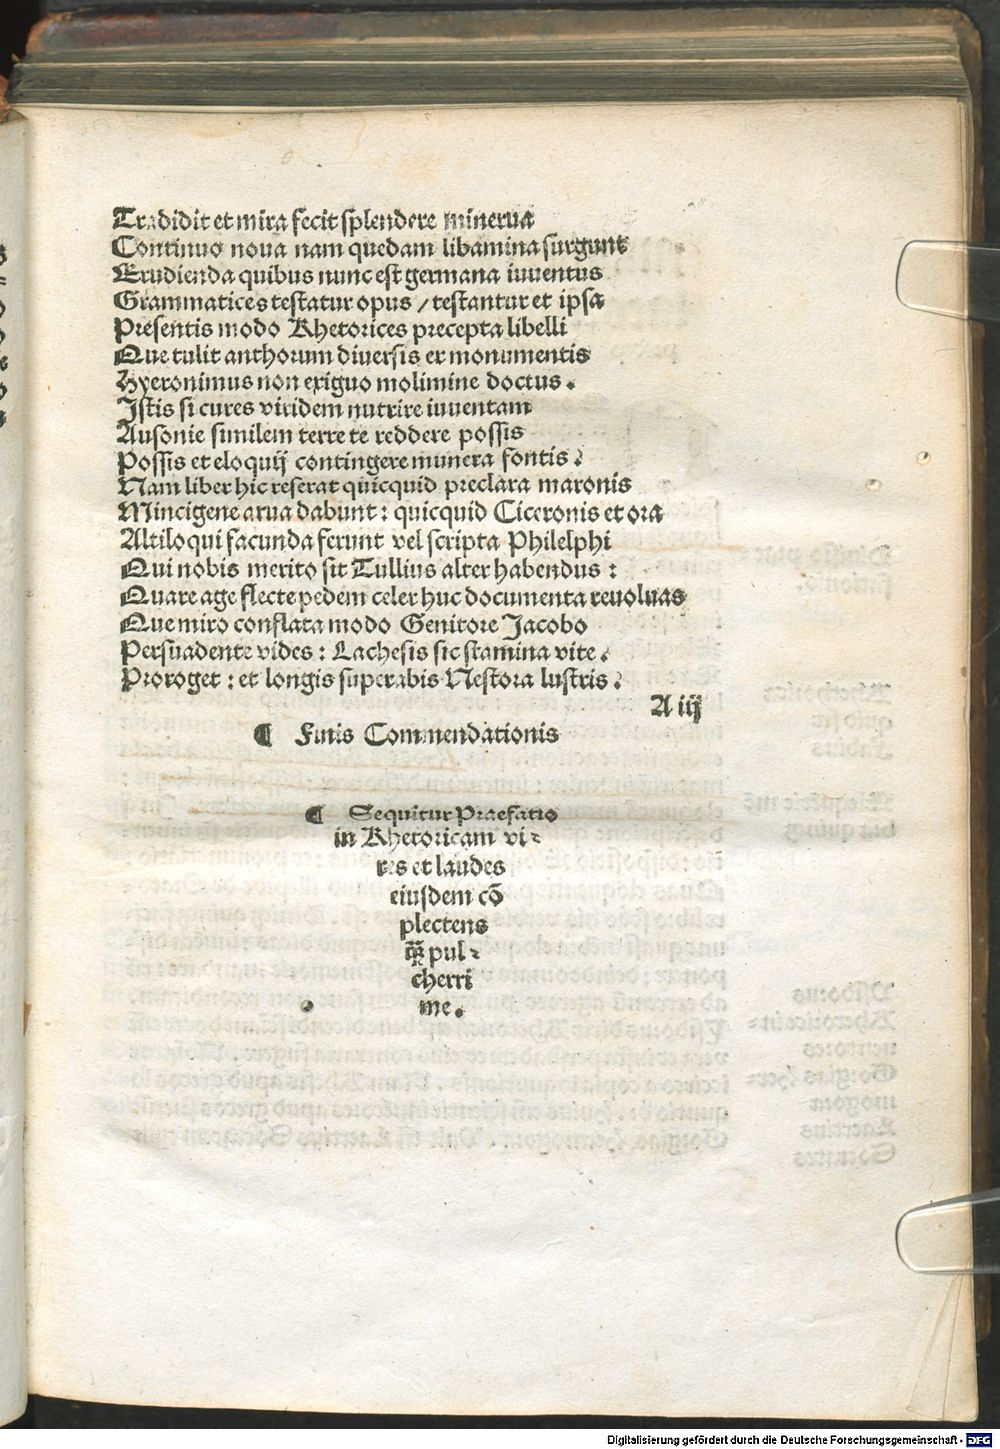 Tradidit et mira fecit splendere minerua
Continuo noua nam quedam libamina surgunt
Erudienda quibus nunc est germana iuuentus
Grammatices testatur opus / testantur et ipsa
Presentis modo Rhetorices precepta libelli
Que tulit anthorum diuersis ex monumentis
Hyeronimus non exiguo molimine doctus.
Istis si cures viridem nutrire iuuentam
Ausonie similem terre te reddere possis
Possis et eloquij contingere munera fontis.
Nam liber hic reserat quicquid preclara maronis
Mincigene arua dabunt: quicquid Ciceronis et ora
Altiloqui facunda ferunt vel scripta Philelphi
Qui nobis merito sit Tullius alter habendus:
Quare age flecte pedem celer huc documenta reuoluas
Que miro conflata modo Genitore Jacobo
Persuadente vides: Lachesis sic stamina vite.
Proroget: et longis superabis Nestora lustris.
A iij
¶ Finis Commendationis
¶ Sequitur Praefatio
in Rhetoricam vi⸗
res et laudes
eiusdem cō
plectens
pul⸗
cherri
me.
Digitalisierung gefördert durch die Deutsche Forschungsgemeinschaft - DFG